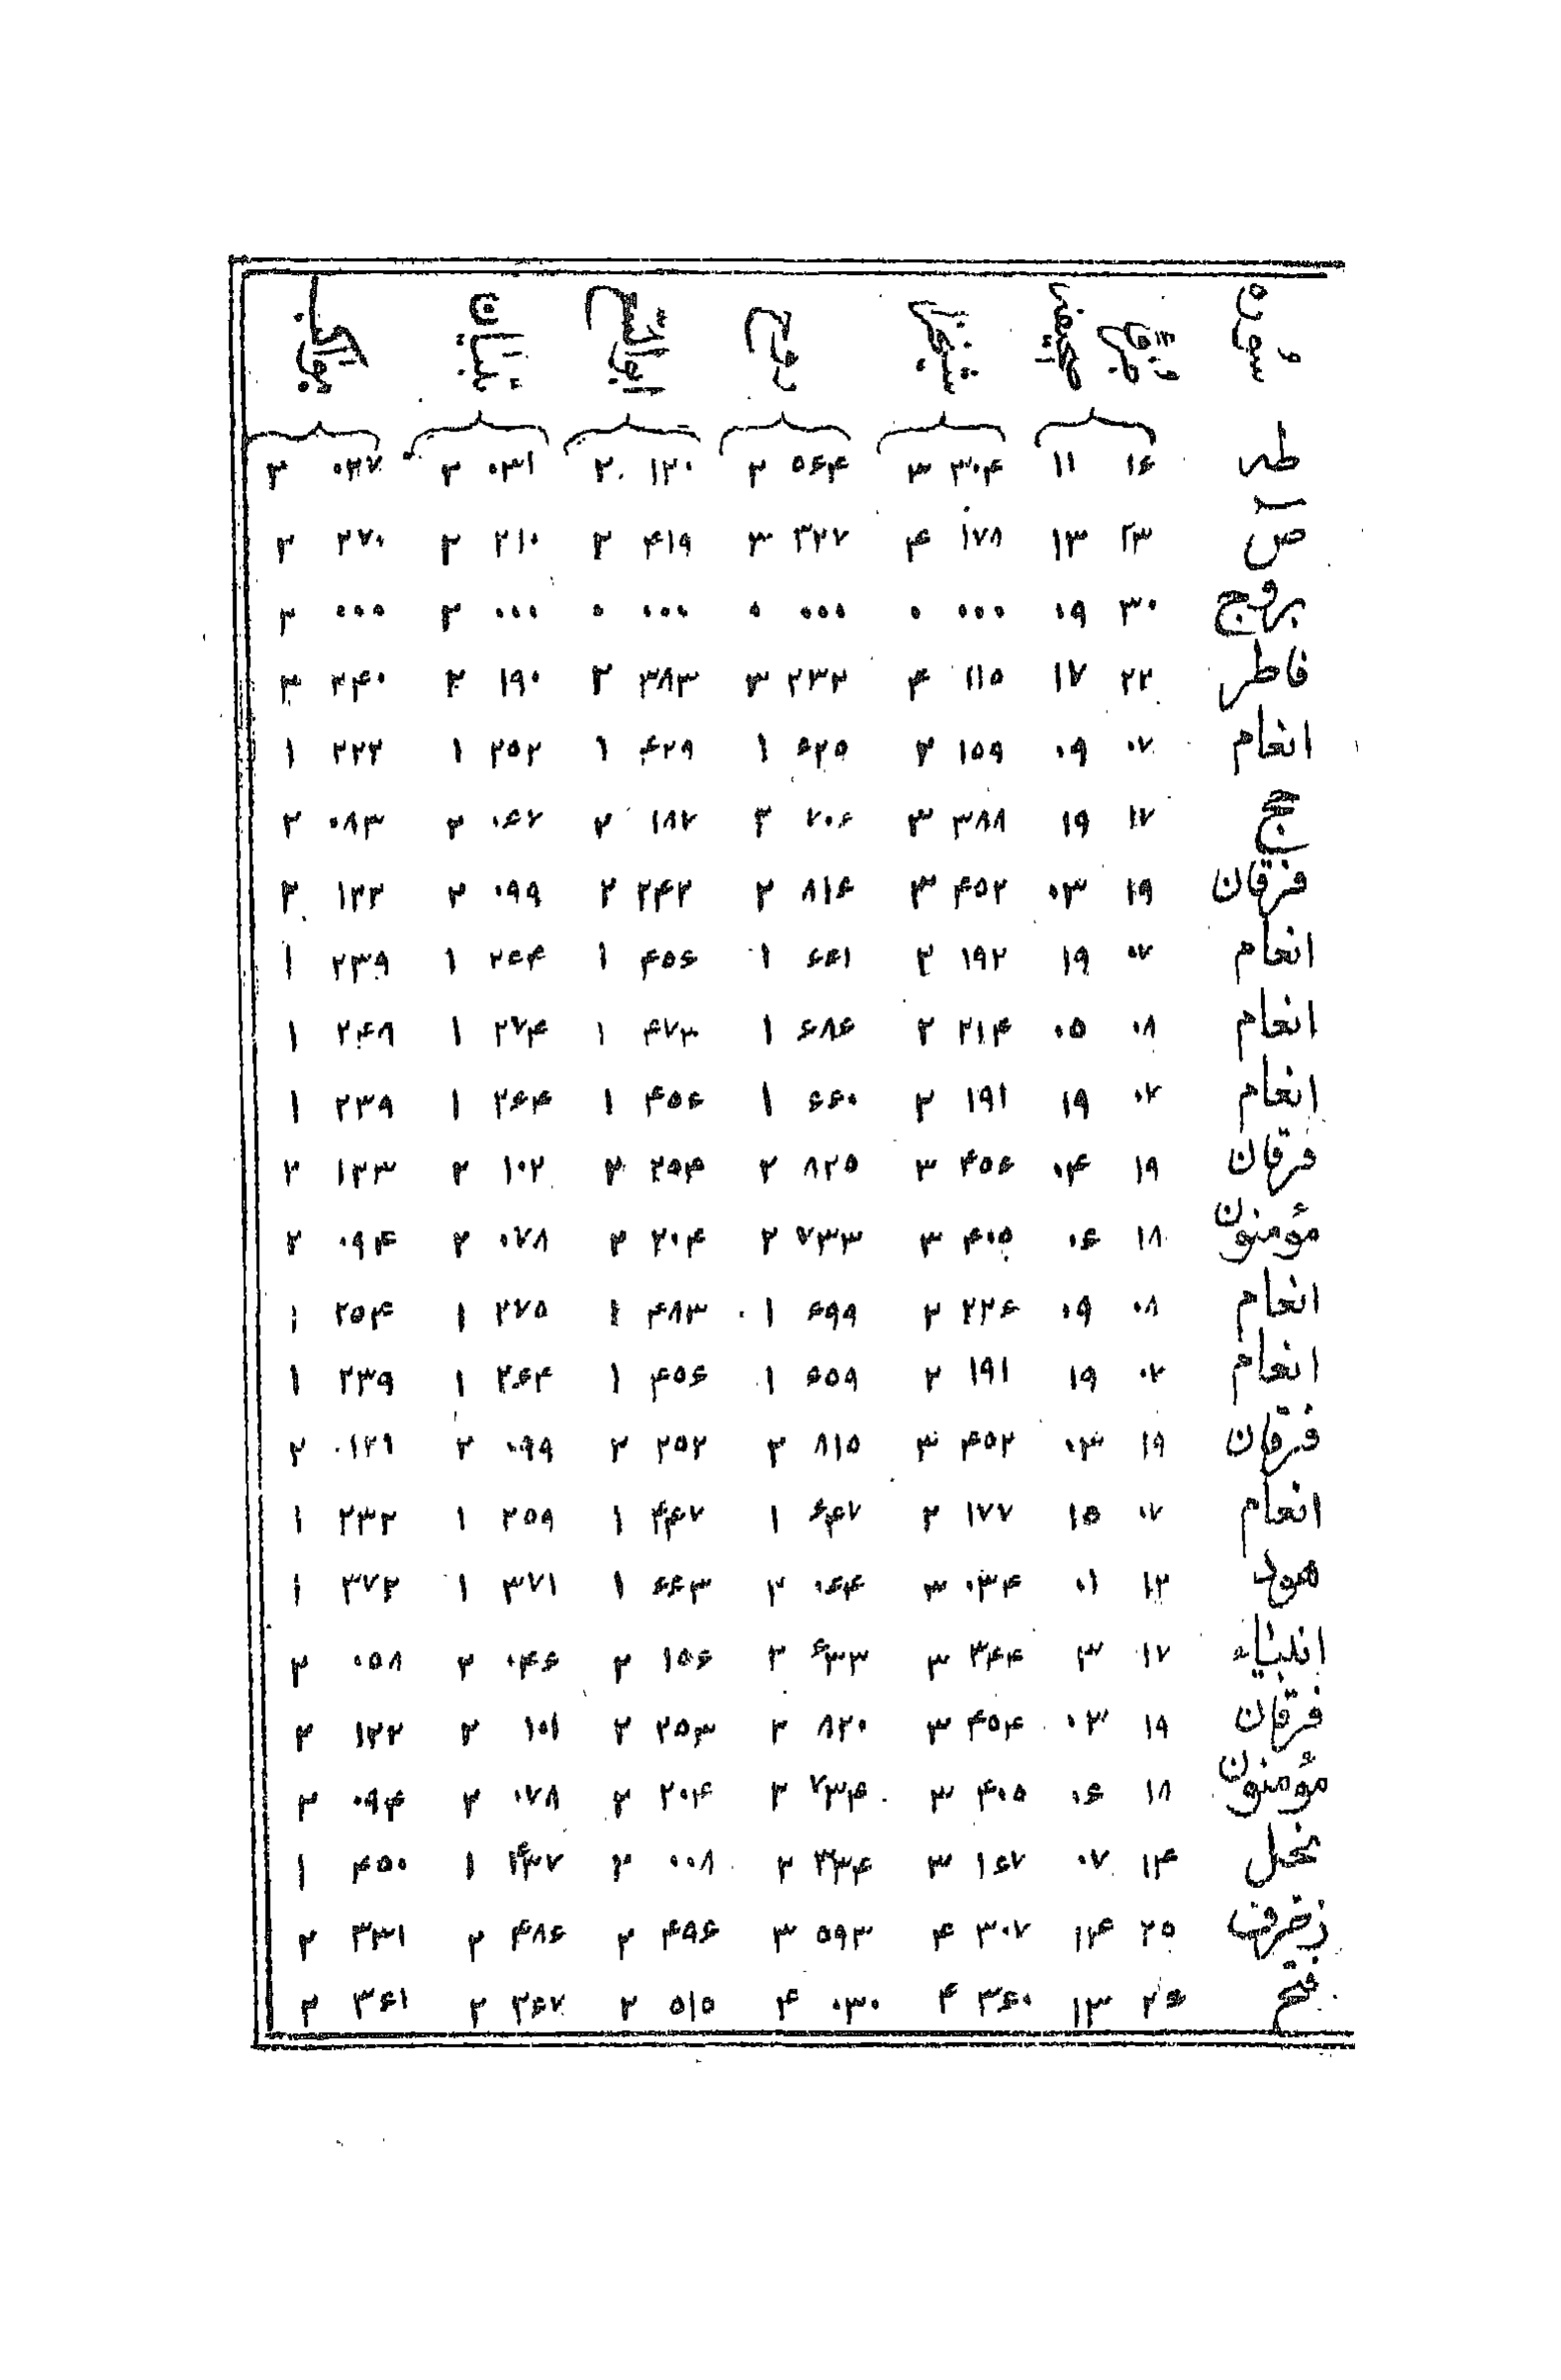 سوره
طه ۱۶ ۱۱ ۳۰۴ ۳ ۵۶۴ ۲ ۱۲۰ ۲ ۰۳۱ ۲ ۰۲۷ ۲
ص ۲۳ ۱۳ ۱۷۸ ۴ ۳۲۷ ۳ ۴۱۹ ۲ ۲۱۰ ۲ ۲۷۰ ۲
بروج ۳۰ ۰۹ ۰۰۰ ۰ ۰۰۰ ۰ ۰۰۰ ۰ ۰۰۰ ۲ ۰۰۰ ۲
فاطر ۲۲ ۱۷ ۱۱۵ ۴ ۲۳۲ ۳ ۳۸۳ ۲ ۱۹۰ ۲ ۲۴۰ ۲
انعام ۰۷ ۰۹ ۱۵۹ ۲ ۶۲۵ ۱ ۴۲۹ ۱ ۲۵۲ ۱ ۲۲۲ ۱
حج ۱۷ ۱۹ ۳۸۸ ۳ ۷۰۶ ۲ ۱۸۷ ۲ ۰۶۷ ۲ ۰۸۳ ۲
فرقان ۱۹ ۰۳ ۴۵۲ ۳ ۸۱۶ ۲ ۲۴۲ ۲ ۰۹۹ ۲ ۱۲۲ ۲
انعام ۰۷ ۱۹ ۱۹۲ ۲ ۶۶۱ ۱ ۴۵۶ ۱ ۲۶۴ ۱ ۲۳۹ ۱
انعام ۰۸ ۰۵ ۲۱۴ ۲ ۶۸۶ ۱ ۴۷۳ ۱ ۲۷۴ ۱ ۲۴۸ ۱
انعام ۰۷ ۱۹ ۱۹۱ ۲ ۶۶۰ ۱ ۴۵۶ ۱ ۲۶۴ ۱ ۲۳۹ ۱
فرقان ۱۹ ۰۴ ۴۵۶ ۳ ۸۲۵ ۲ ۲۵۴ ۲ ۱۰۲ ۲ ۱۲۳ ۲
مؤمنون ۱۸ ۰۶ ۴۰۵ ۳ ۷۳۳ ۲ ۲۰۴ ۲ ۰۷۸ ۲ ۰۹۴ ۲
انعام ۰۸ ۰۹ ۲۲۶ ۲ ۶۹۹ ۱ ۴۸۳ ۱ ۲۷۵ ۱ ۲۵۴ ۱
انعام ۰۷ ۱۹ ۱۹۱ ۲ ۶۵۹ ۱ ۴۵۶ ۱ ۲۶۴ ۱ ۲۳۹ ۱
فرقان ۱۹ ۰۳ ۴۵۲ ۳ ۸۱۵ ۲ ۲۵۲ ۲ ۰۹۹ ۲ ۱۲۱ ۲
انعام ۰۷ ۱۵ ۱۷۷ ۲ ۶۴۷ ۱ ۴۴۷ ۱ ۲۵۹ ۱ ۲۳۲ ۱
هود ۱۲ ۰۱ ۰۳۴ ۳ ۰۶۴ ۲ ۶۶۳ ۱ ۳۷۱ ۱ ۳۷۲ ۱
انبیاء ۱۷ ۳ ۳۴۴ ۳ ۶۳۳ ۲ ۱۵۶ ۲ ۰۴۶ ۲ ۰۵۸ ۲
فرقان ۱۹ ۰۳ ۴۵۴ ۳ ۸۲۰ ۲ ۲۵۳ ۲ ۱۰۱ ۲ ۱۲۲ ۲
مؤمنون ۱۸ ۰۶ ۴۰۵ ۳ ۷۳۴ ۲ ۲۰۴ ۲ ۰۷۸ ۲ ۰۹۴ ۲
نحل ۱۴ ۰۷ ۱۶۷ ۳ ۳۳۴ ۲ ۰۰۸ ۲ ۴۳۷ ۱ ۴۵۰ ۱
زخرف ۲۵ ۱۴ ۳۰۷ ۴ ۵۹۳ ۳ ۴۹۶ ۲ ۴۸۶ ۲ ۳۳۱ ۲
فتح ۲۶ ۱۳ ۳۶۰ ۴ ۰۳۰ ۴ ۵۱۵ ۲ ۲۶۷ ۲ ۳۶۱ ۲